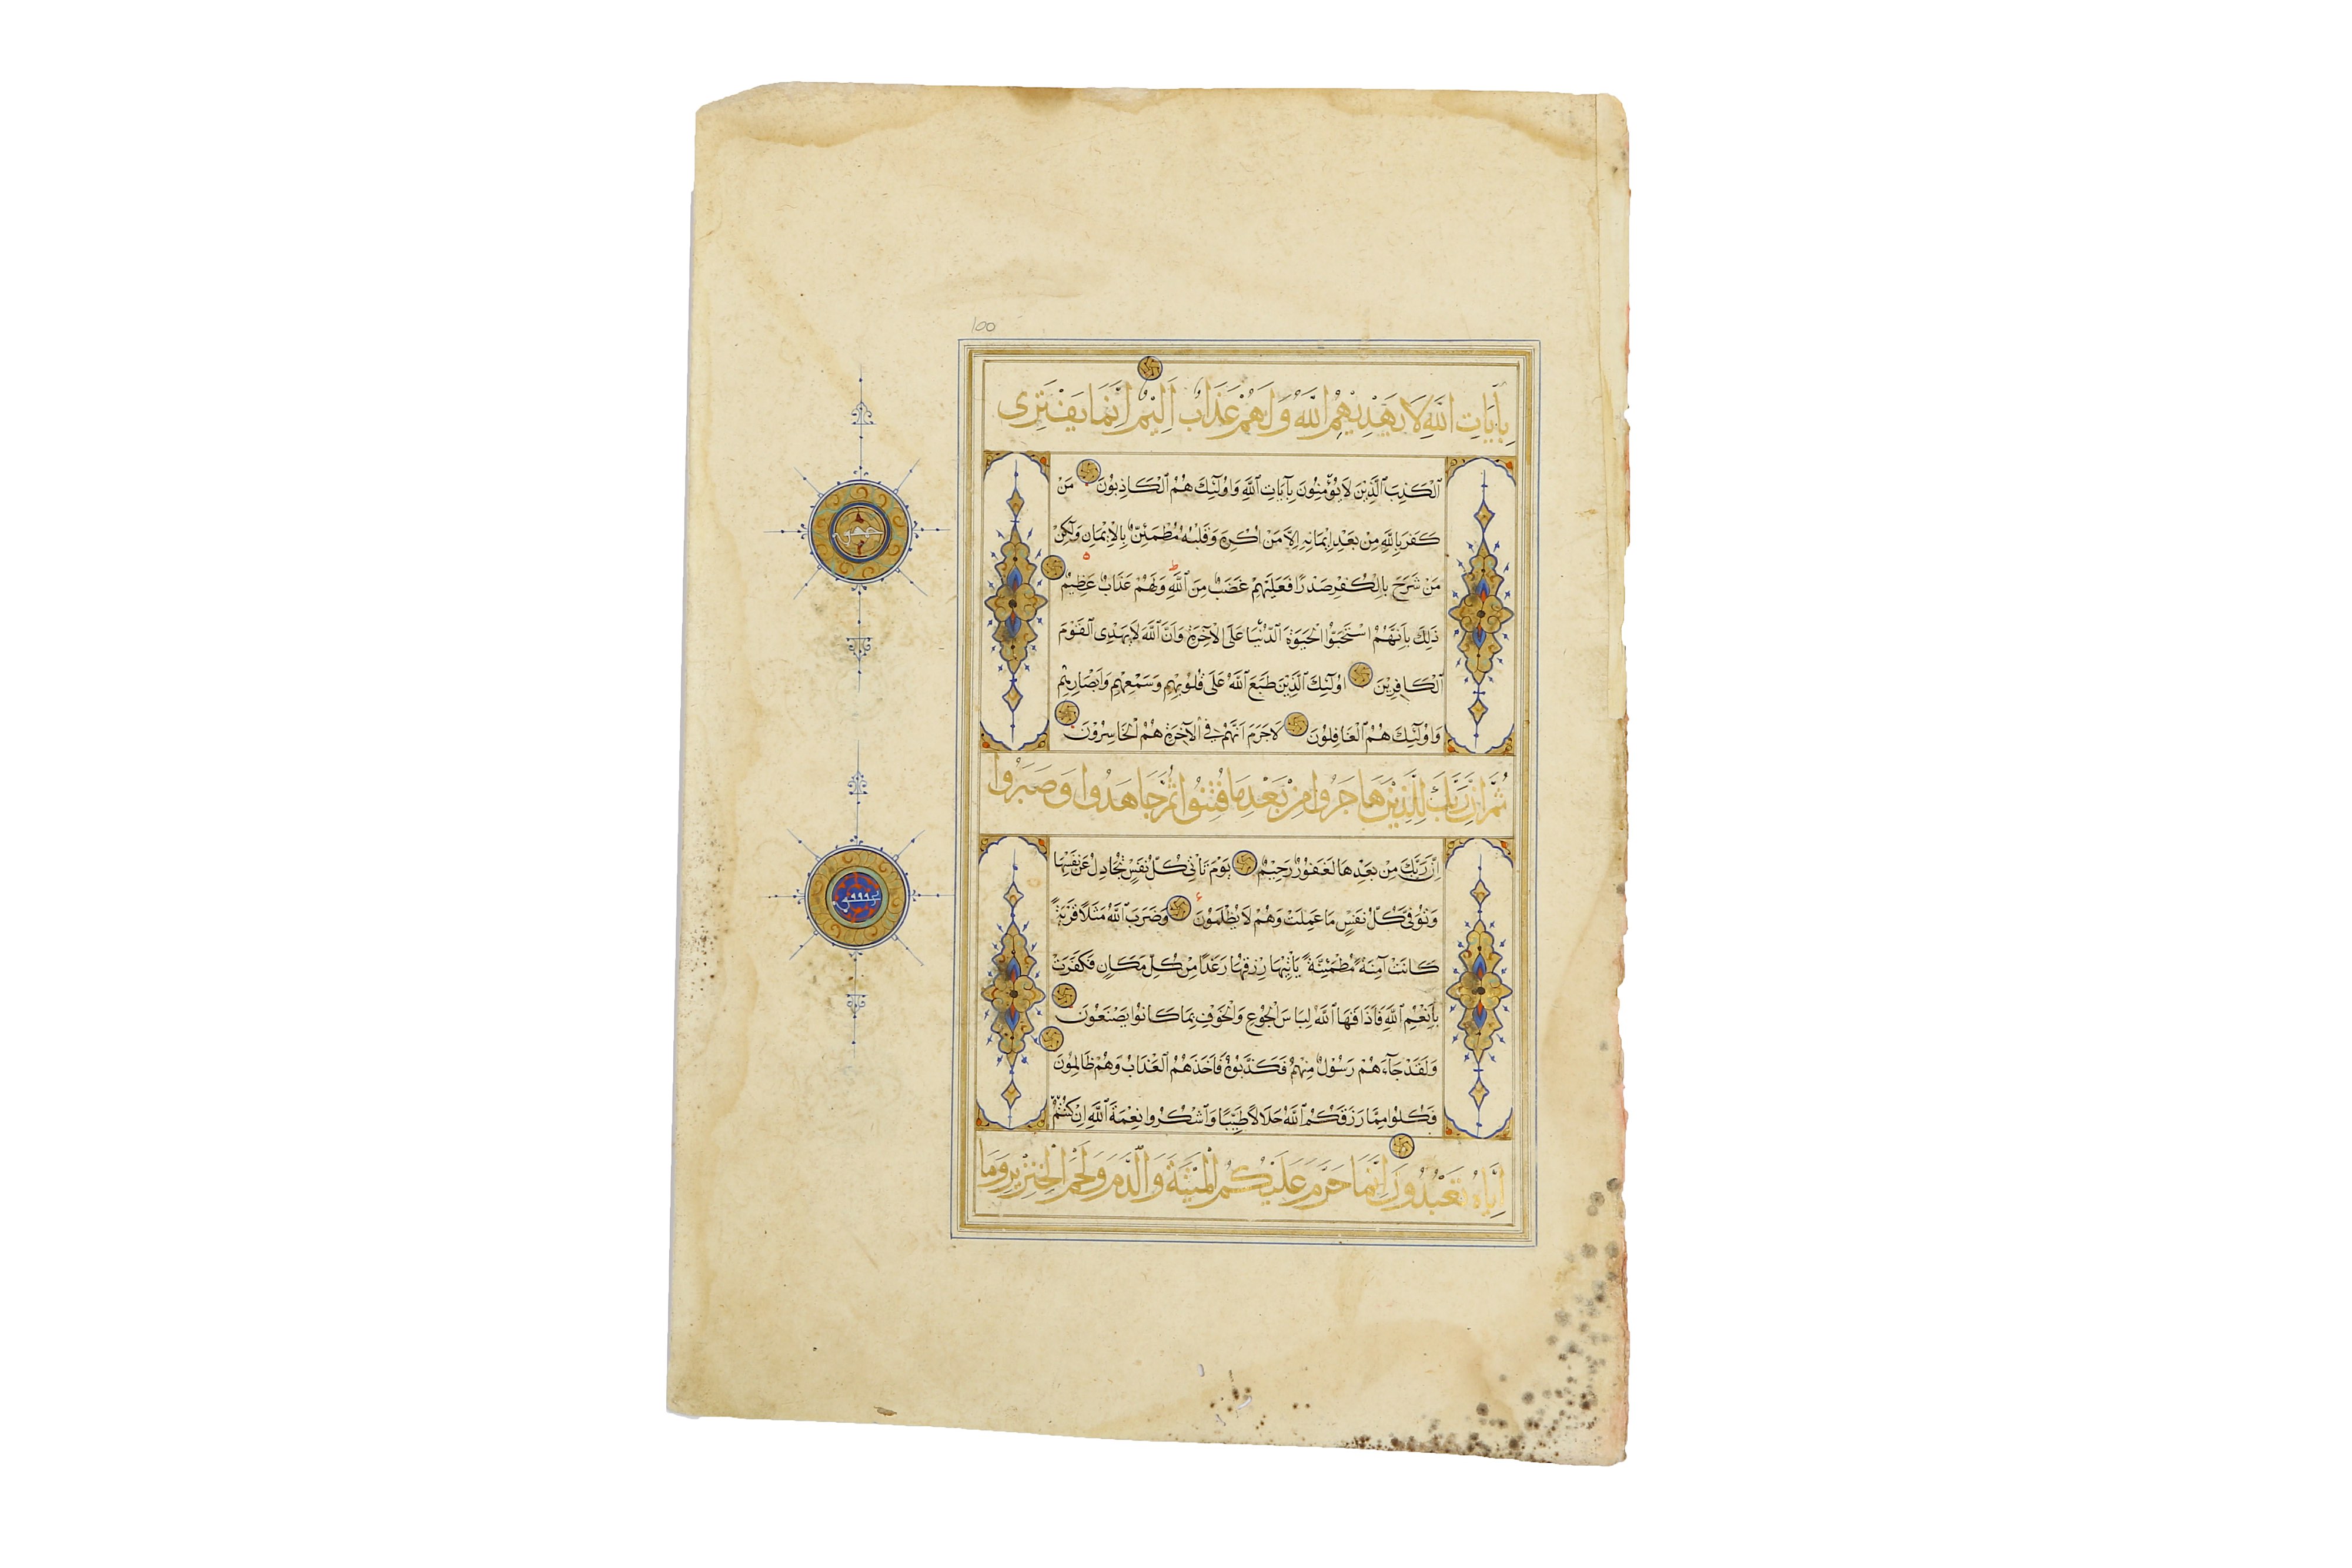 100
بِاٰيَاتِ اللّٰهِ لَا يَهْدِيْهِمُ اللّٰهُ وَلَهُمْ عَذَابٌ اَلِيْمٌ اِنَّمَا يَفْتَرِى
الْكَذِبَ الَّذِيْنَ لَا يُؤْمِنُوْنَ بِاٰيَاتِ اللّٰهِ وَاُولٰٓئِكَ هُمُ الْكَاذِبُوْنَ مَنْ
كَفَرَ بِاللّٰهِ مِنْ بَعْدِ اِيْمَانِهِ اِلَّا مَنْ اُكْرِهَ وَقَلْبُهُ مُطْمَئِنٌّ بِالْاِيْمَانِ وَلٰكِنْ
مَنْ شَرَحَ بِالْكُفْرِ صَدْرًا فَعَلَيْهِمْ غَضَبٌ مِنَ اللّٰهِ وَلَهُمْ عَذَابٌ عَظِيْمٌ
ذٰلِكَ بِاَنَّهُمُ اسْتَحَبُّوا الْحَيٰوةَ الدُّنْيَا عَلَى الْاٰخِرَةِ وَاَنَّ اللّٰهَ لَا يَهْدِى الْقَوْمَ
الْكَافِرِيْنَ اُولٰٓئِكَ الَّذِيْنَ طَبَعَ اللّٰهُ عَلَى قُلُوْبِهِمْ وَسَمْعِهِمْ وَاَبْصَارِهِمْ
وَاُولٰٓئِكَ هُمُ الْغَافِلُوْنَ لَا جَرَمَ اَنَّهُمْ فِى الْاٰخِرَةِ هُمُ الْخَاسِرُوْنَ
ثُمَّ اِنَّ رَبَّكَ لِلَّذِيْنَ هَاجَرُوا مِنْ بَعْدِ مَا فُتِنُوا ثُمَّ جَاهَدُوا وَصَبَرُوا
اِنَّ رَبَّكَ مِنْ بَعْدِهَا لَغَفُوْرٌ رَحِيْمٌ يَوْمَ تَأْتِى كُلُّ نَفْسٍ تُجَادِلُ عَنْ نَفْسِهَا
وَتُوَفّٰى كُلُّ نَفْسٍ مَا عَمِلَتْ وَهُمْ لَا يُظْلَمُوْنَ وَضَرَبَ اللّٰهُ مَثَلًا قَرْيَةً
كَانَتْ اٰمِنَةً مُطْمَئِنَّةً يَأْتِيْهَا رِزْقُهَا رَغَدًا مِنْ كُلِّ مَكَانٍ فَكَفَرَتْ
بِاَنْعُمِ اللّٰهِ فَاَذَاقَهَا اللّٰهُ لِبَاسَ الْجُوْعِ وَالْخَوْفِ بِمَا كَانُوا يَصْنَعُوْنَ
وَلَقَدْ جَآءَهُمْ رَسُوْلٌ مِنْهُمْ فَكَذَّبُوْهُ فَاَخَذَهُمُ الْعَذَابُ وَهُمْ ظَالِمُوْنَ
فَكُلُوا مِمَّا رَزَقَكُمُ اللّٰهُ حَلَالًا طَيِّبًا وَاشْكُرُوا نِعْمَةَ اللّٰهِ اِنْ كُنْتُمْ
اِيَّاهُ تَعْبُدُوْنَ اِنَّمَا حَرَّمَ عَلَيْكُمُ الْمَيْتَةَ وَالدَّمَ وَلَحْمَ الْخِنْزِيْرِ وَمَا